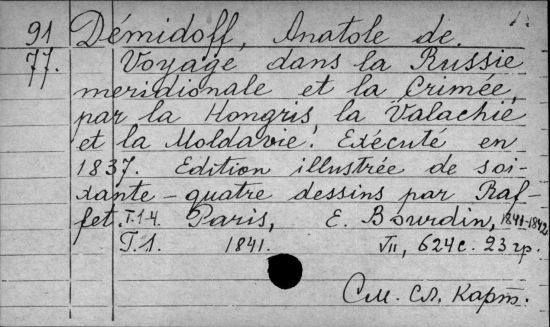 91 Démidoff, Anatole de.
77. Voyage dans la Russie
meridionale et la Crimée,
par la Hongris, la Valachie
et la Moldavie. Exécuté en
1837. Edition illustrée de soi-
xante-quatre dessins par Raf
fet. T.1-4. Paris, E. Bourdin, 1841-1842.
T.1. 1841. VII, 624 с. 23 гр.
См. сл. карт.